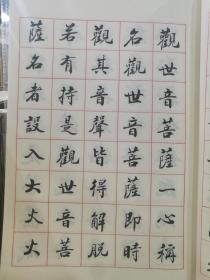 觀世音菩薩一心稱
名觀世音菩薩即時
觀其音聲皆得解脫
若有持是觀世音菩
薩名者設入大火火